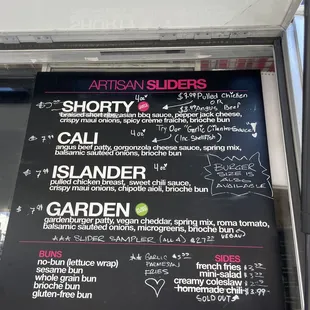 ARTISAN SLIDERS
SHORTY 4oz
$3.99 Pulled Chicken
OR
$3.99 Angus Beef
braised short ribs, asian bbq sauce, pepper jack cheese,
crispy maui onions, spicy creme fraiche, brioche bun
Try Our "Garlic Cilantro Sauce"
(Inc. Shellfish)
$7.99 CALI 4oz
angus beef patty, gorgonzola cheese sauce, spring mix,
balsamic sauteed onions, brioche bun
$7.99 ISLANDER 4oz
pulled chicken breast, sweet chili sauce,
crispy maui onions, chipotle aioli, brioche bun
BURGER
SIZE IS
ALSO
AVAILABLE
$7.99 GARDEN
gardenburger patty, vegan cheddar, spring mix, roma tomato,
balsamic sauteed onions, microgreens, brioche bun
VEGAN
SLIDER SAMPLER (ALL 4) $27.99
BUNS
no-bun (lettuce wrap)
sesame bun
whole grain bun
brioche bun
gluten-free bun
GARLIC
PARMESAN
FRIES
SIDES
french fries
mini-salad
creamy coleslaw
homemade chili $2.99
SOLD OUT